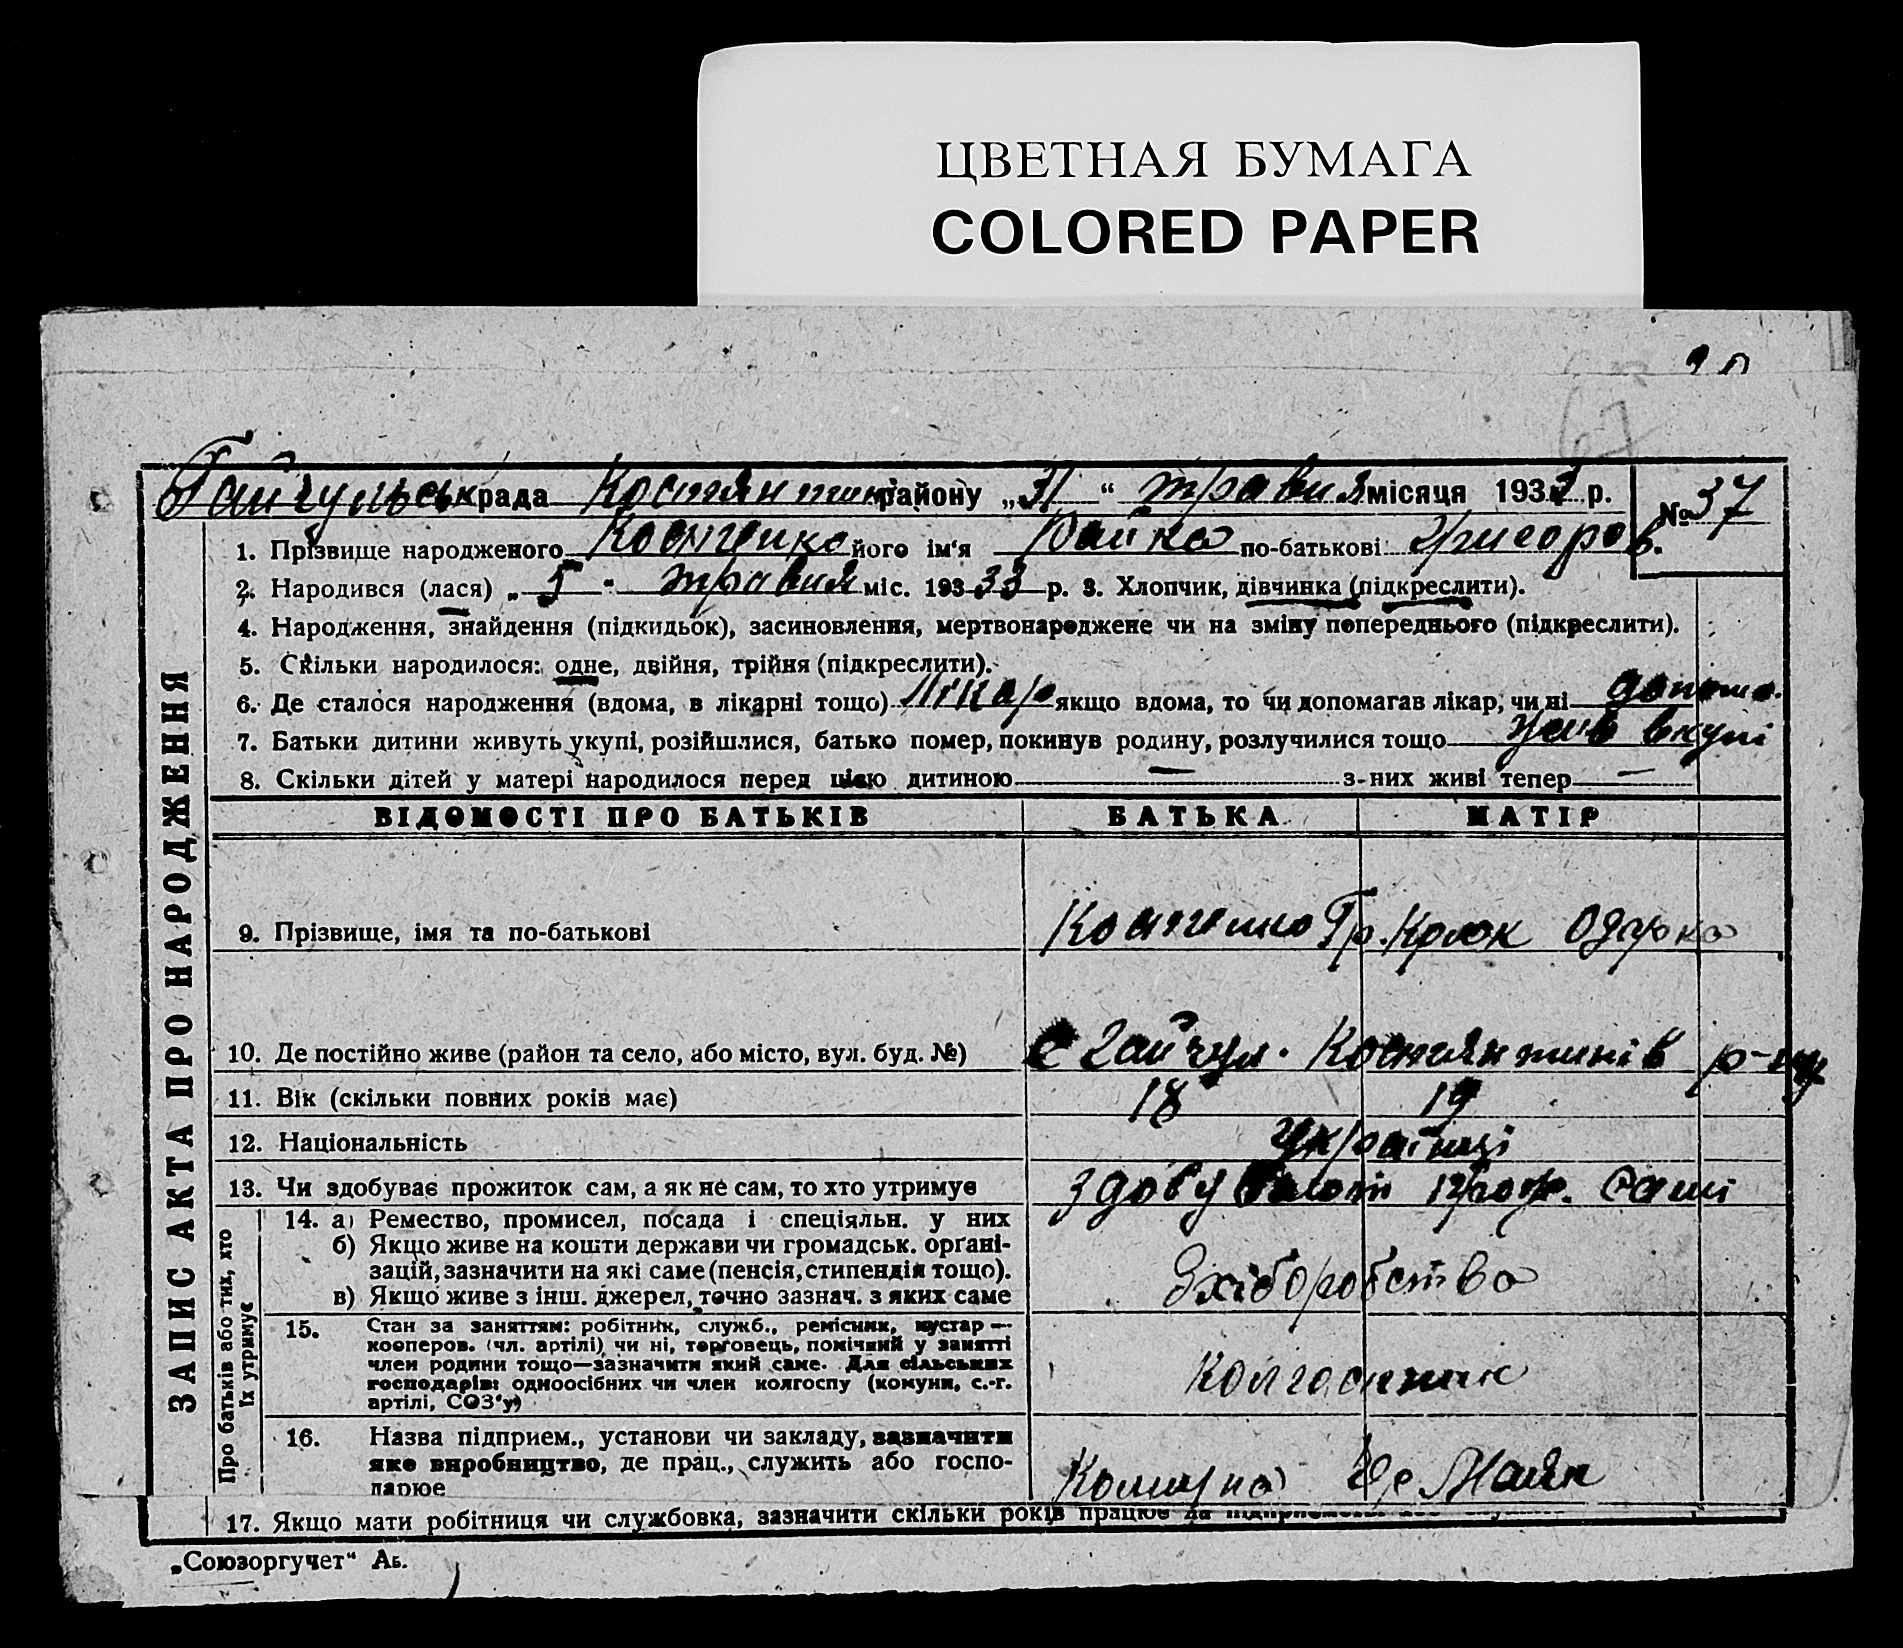 ЦВЕТНАЯ БУМАГА
COLORED PAPER
Гайчульськ рада Костянтин району „31“ травня місяця 1933 р. № 37
1. Прізвище народженого Костенко його ім‘я Райка по-батькові Григоров.
2. Народився (лася) „ 5 “ травня міс. 193 33 р. 3. Хлопчик, дівчинка (підкреслити).
4. Народження, знайдення (підкидьок), засиновлення, мертвонароджене чи на зміну попереднього (підкреслити).
5. Скільки народилося: одне, двійня, трійня (підкреслити).
6. Де сталося народження (вдома, в лікарні тощо) Лікар якщо вдома, то чи допомагав лікар, чи ні
7. Батьки дитини живуть укупі, розійшлися, батько помер, покинув родину, розлучилися тощо вкупі
8. Скільки дітей у матері народилося перед цією дитиною — з них живі тепер —
ЗАПИС АКТА ПРО НАРОДЖЕННЯ
ВІДОМОСТІ ПРО БАТЬКІВ БАТЬКА МАТІР
9. Прізвище, імя та по-батькові Костенко Гр. Крюк Одарка
10. Де постійно живе (район та село, або місто, вул. буд. №) с Гайчул. Костянтинів р-ну
11. Вік (скільки повних років має) 18 19
12. Національність українці
13. Чи здобуває прожиток сам, а як не сам, то хто утримує сами
Про батьків або тих, хто їх утримує
14. а) Ремество, промисел, посада і спеціяльн. у них
б) Якщо живе на кошти держави чи громадськ. орґані-
зацій, зазначити на які саме (пенсія, стипендія тощо).
в) Якщо живе з інш. джерел, точно зазнач. з яких саме
Зхіборобство
15. Стан за заняттям: робітник, служб., ремісник, кустар —
кооперов. (чл. артілі) чи ні, торговець, помічний у занятті
член родини тощо—зазначити який саме. Для сільських
господарів: одноосібних чи член колгоспу (комуни, с.-г.
артілі, СОЗ‘у)
Колгоспник
16. Назва підприєм., установи чи закладу, зазначити
яке виробництво, де прац., служить або госпо-
дарює
Комуна Маяк
17. Якщо мати робітниця чи службовка, зазначити скільки років працює на
„Союзоргучет“ Аь.